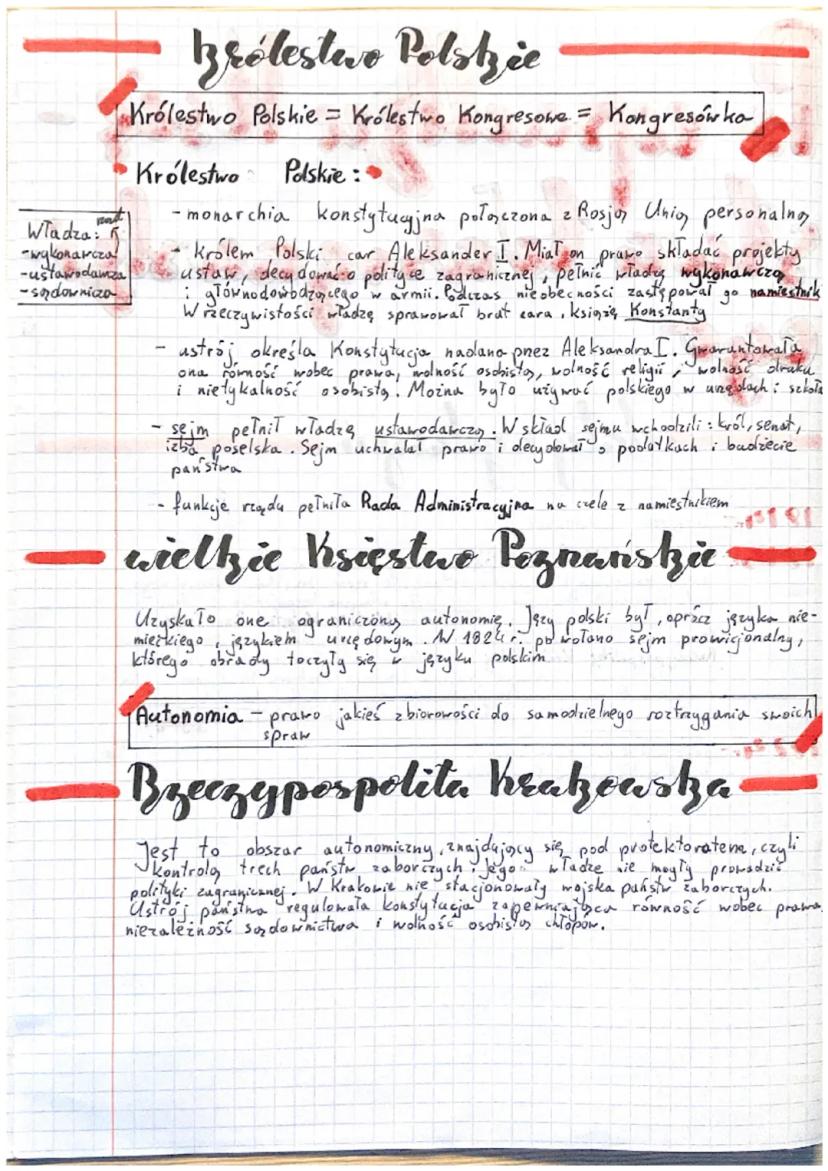 Królestwo Polskie
Królestwo Polskie = Królestwo Kongresowe = Kongresówka
Królestwo Polskie:
Władza: rząd
-wykonawcza
-ustawodawcza
-sądownicza
- monarchia konstytucyjna połączona z Rosją Unią personalną
- Królem Polski car Aleksander I. Miał on prawo składać projekty
ustaw, decydować o polityce zagranicznej, pełnić władzę wykonawczą
i głównodowodzącego w armii. Podczas nieobecności zastępował go namiestnik
W rzeczywistości władzę sprawował brat cara, książę Konstanty
- ustrój określa Konstytucja nadana przez Aleksandra I. Gwarantowała
ona równość wobec prawa, wolność osobistą, wolność religii, wolność druku
i nietykalność osobistą. Można było używać polskiego w urzędach i szkoła
- sejm pełnił władzę ustawodawczą. W skład sejmu wchodzili: król, senat,
izba poselska. Sejm uchwalał prawo i decydował o podatkach i budżecie
państwa
- funkcje rządu pełniła Rada Administracyjna na czele z namiestnikiem
wielkie Księstwo Poznańskie
Uzyskało one ograniczoną autonomię. Języ polski był, oprócz języka nie-
mieckiego, językiem urzędowym. W 1824 r. powołano sejm prowincjonalny,
którego obrady toczyły się w języku polskim
Autonomia - prawo jakieś zbiorowości do samodzielnego roztrzygania swoich
spraw
Rzeczypospolita Krakowska
Jest to obszar autonomiczny, znajdujący się pod protektoratem, czyli
kontrolą trech państw zaborczych i jego władze nie mogły prowadzić
polityki zagranicznej. W Krakowie nie stacjonowały wojska państw zaborczych.
Ustrój państwa regulowała konstytucja zapewniająca równość wobec prawa,
niezależność sądownictwa i wolność osobistą chłopów.